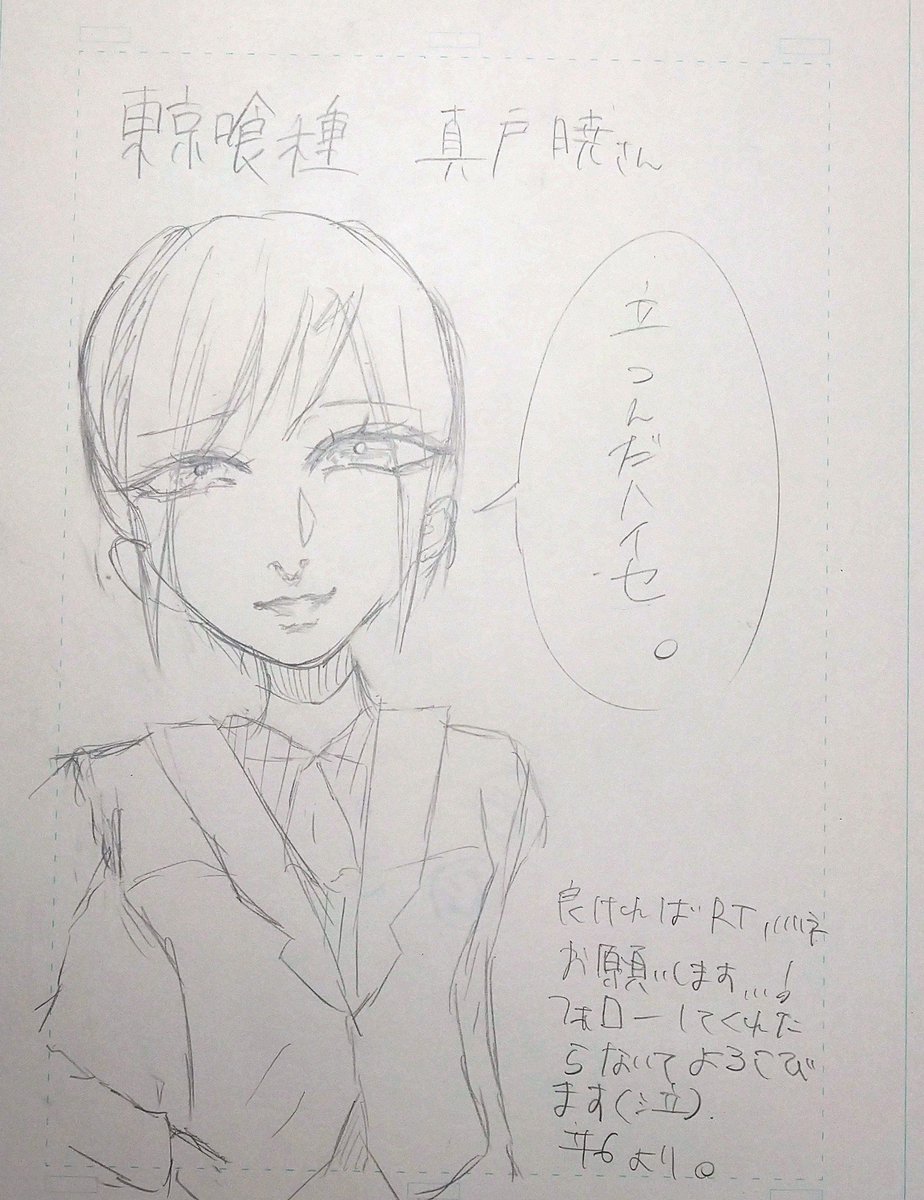 東京喰種 真戸暁さん
立つんだハイセ。
良ければRT,いいネ
お願いします...!
フォローしてくれた
らないてよろこび
ます(泣).
#6より。